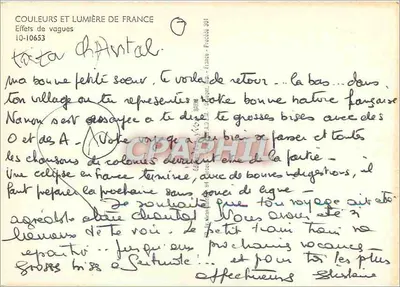 COULEURS ET LUMIÈRE DE FRANCE
Effets de vagues
10-10653
tata chantal
ma bonne petite sœur, te voila de retour ... la bas... dans
ton village ou tu representes notre bonne nature française
Nanou est dessayée a te dire te grosses bises avec des
O et des A. Votre voyage a du bien se passer et toutes
les chansons de colonies devaient être de la partie.
Une eclipse en France termine, avec de bonnes indigestions, il
faut preparer la prochaine sans souci de ligne.
Je souhaite que ton voyage ait été
agréable chère chantal. Nous avons été si
heureux de te voir. Le petit train train va
repartir.. jusqu'aux prochaines vacances.
Grosses bises a ... et pour toi les plus
affectueuses Ghislaine
CPAPHIL